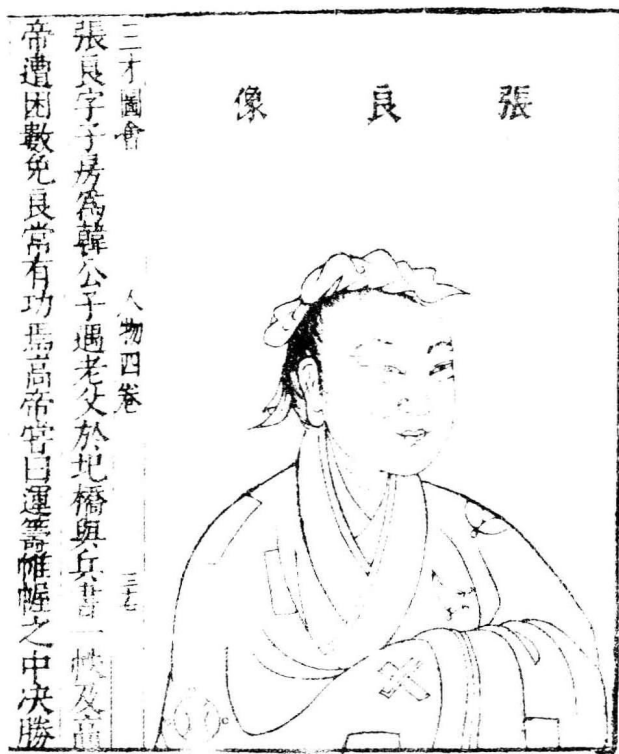 張良像
三才圖會 人物四卷 三七
張良字子房為韓公子遇老父於圯橋與兵書一帙及高
帝遭困數免良常有功焉高帝嘗曰運籌帷幄之中決勝